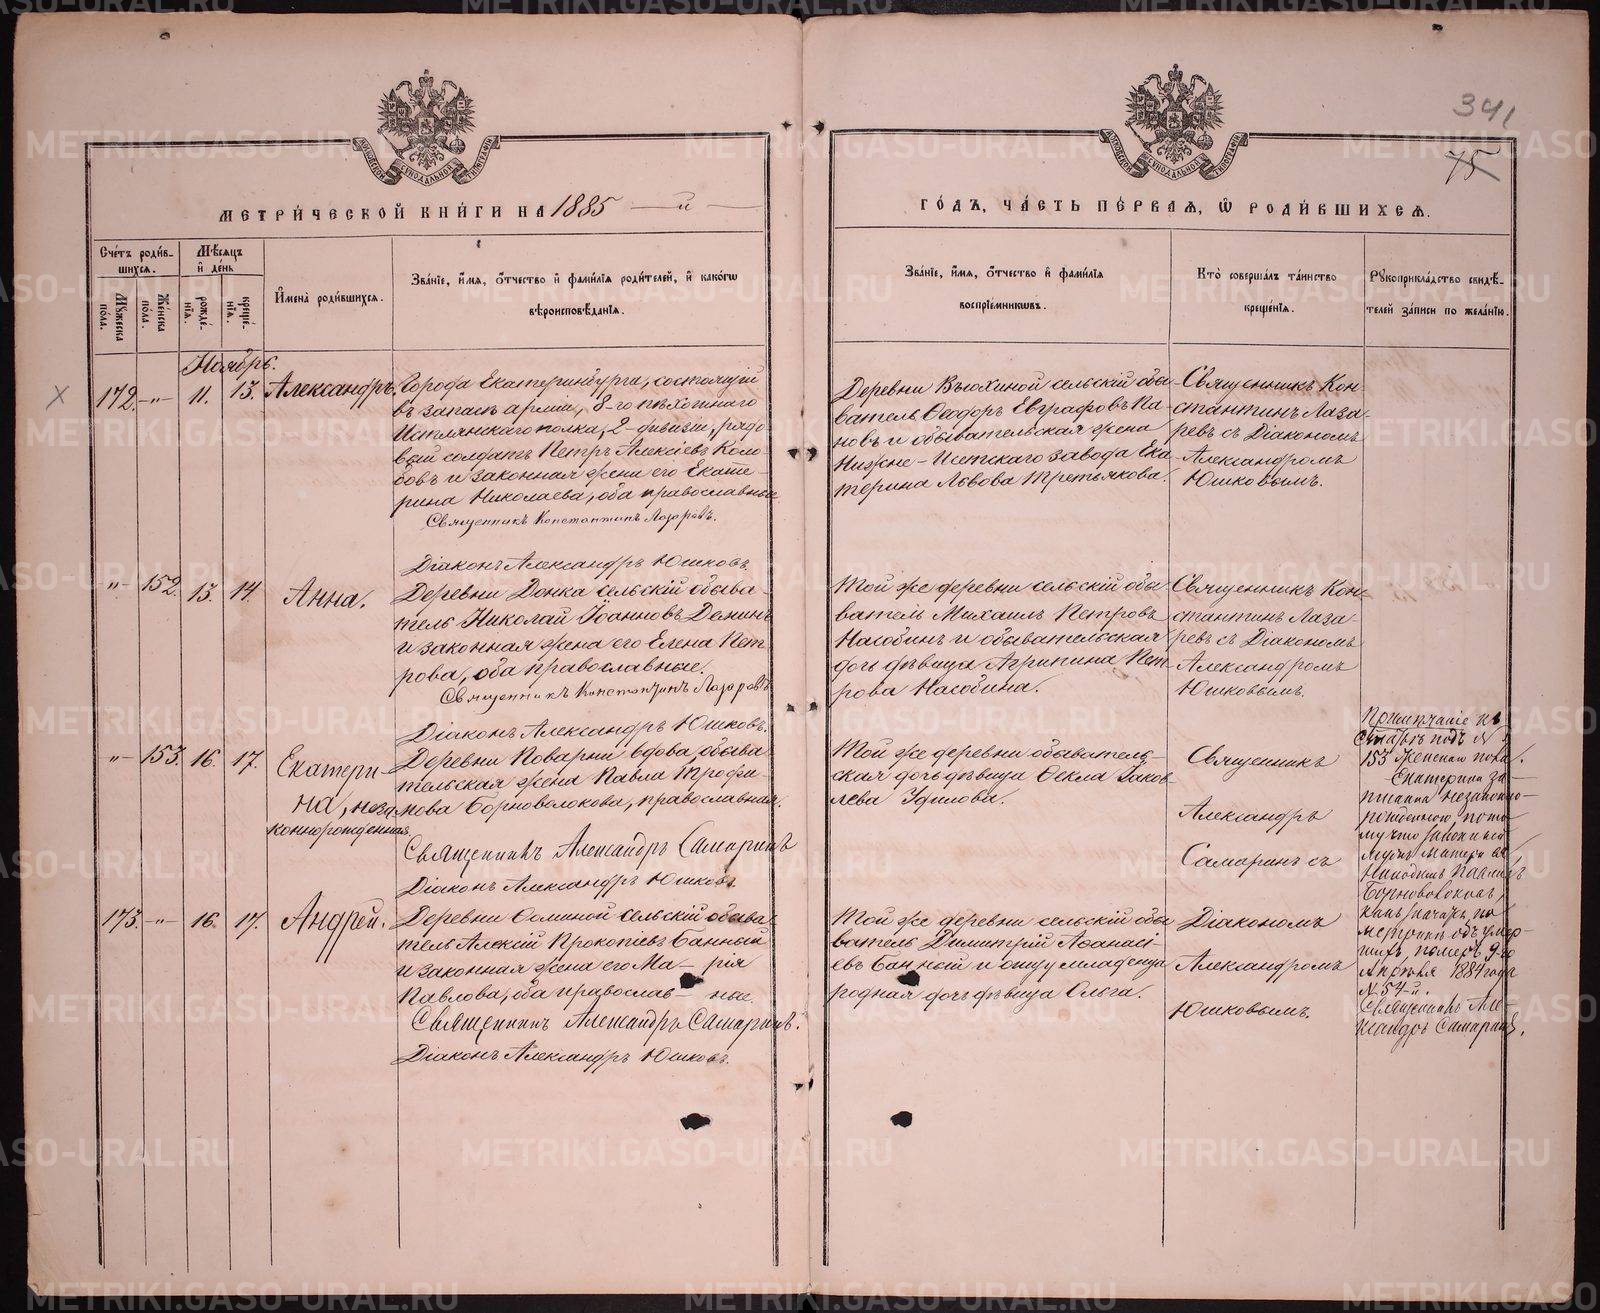 341
75
МЕТРИ́ЧЕСКОЙ КНИ́ГИ НА 1885 й
ГО́ДЪ, ЧА́СТЬ ПЕ́РВАЯ, Ѡ҆ РОДИ́ВШИХСЯ.
Сче́тъ роди́в-
шихся.
Мꙋ́жеска пола.
Же́нска пола.
Мѣ́сяцъ
и҆ де́нь
рожде́-
нїя.
креще́-
нїя.
И҆мена̀ роди́вшихся.
Зва́нїе, и҆́мя, ѻ҆́тчество и҆ фами́лїя роди́телей, и҆ како́гѡ
вѣроисповѣ́данїя.
Зва́нїе, и҆́мя, ѻ҆́тчество и҆ фами́лїя
воспрїе́мникѡвъ.
Кто̀ соверша́лъ та́инство
креще́нїя.
Рꙋкоприкла́дство свидѣ́-
телей за́писи по жела́нїю.
Ноябрь.
172. -"- 11. 13. Александръ.
Города Екатеринбурга, состоящій
въ запасѣ арміи, 8-го пѣхотнаго
Истлянскаго полка, 2-дивизіи, рядо-
вый солдатъ Петръ Алексіевъ Коло-
бовъ и законная жена его Екате-
рина Николаева, оба православные.
Священникъ Константинъ Лазаревъ.
Діаконъ Александръ Юшковъ.
Деревни Вьюхиной сельскій обы-
ватель Ѳеодоръ Евграфовъ Па-
новъ и обывательская жена
Нижне-Исетскаго завода Ека-
терина Львова Третьякова.
Священникъ Кон-
стантинъ Лаза-
ревъ съ Діакономъ
Александромъ
Юшковымъ.
-"- 152. 13. 14. Анна.
Деревни Донка сельскій обыва-
тель Николай Іоанновъ Деминъ
и законная жена его Елена Пет-
рова, оба православные.
Священникъ Константинъ Лазаревъ
Діаконъ Александръ Юшковъ.
Той же деревни сельскій обы-
ватель Михаилъ Петровъ
Насобинъ и обывательская
дочь дѣвица Агрипина Пет-
рова Насобина.
Священникъ Кон-
стантинъ Лаза-
ревъ съ Діакономъ
Александромъ
Юшковымъ.
-"- 153. 16. 17. Екатери-
на, неза-
коннорожденная.
Деревни Поварни вдова, обыва-
тельская жена Павла Трофи-
мова Борноволокова, православная.
Священникъ Александръ Самаринъ
Діаконъ Александръ Юшковъ.
Той же деревни обыватель-
ская дочь дѣвица Ѳекла Іаков-
лева Удилова.
Священникъ
Александръ
Самаринъ съ
Примѣчаніе къ
статьѣ подъ №
153 женскаго пола.
Екатерина за-
писана незаконно-
рожденною, пото-
му что законный
мужъ матери ея,
Павелъ
Борноволоковъ,
какъ значитъ по
метрикѣ объ умер-
шихъ, померъ 9-го
Апрѣля 1884 года
№ 54-й.
Священникъ Але-
ксандръ Самаринъ.
173. -"- 16. 17. Андрей.
Деревни Фоминой сельскій обыва-
тель Алексій Прокопіевъ Банный
и законная жена его Ма- рія
Павлова, оба православ- ные.
Священникъ Александръ Самаринъ.
Діаконъ Александръ Юшковъ.
Той же деревни сельскій обы-
ватель Димитрій Аѳанасі-
евъ Банный и отцу младенца
родная дочь дѣвица Ольга.
Діакономъ
Александромъ
Юшковымъ.